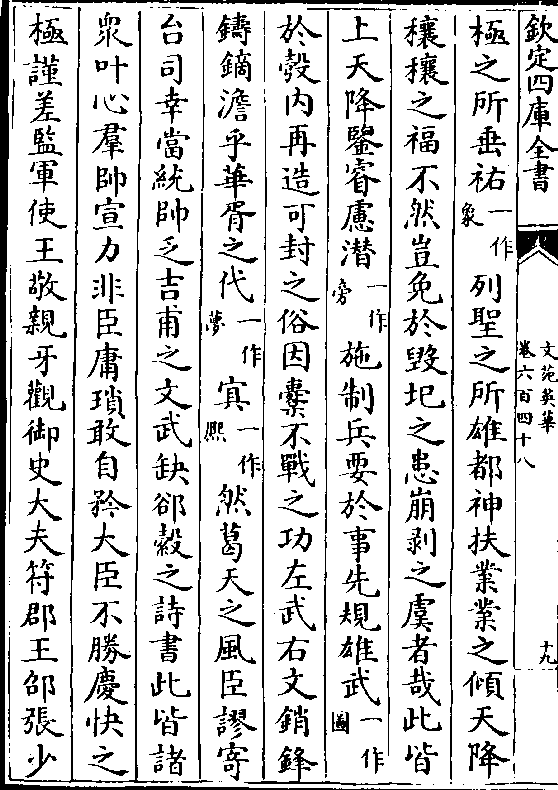 欽定四庫全書
文苑英華
卷六百四十八
十九
極之所垂祐一作象列聖之所雄都神扶業業之傾天降
穰穰之福不然豈免於毀圮之患崩剥之虞者哉此皆
上天降鑒睿慮潛一作旁施制兵要於事先規雄武一作圖
於彀内再造可封之俗因櫜不戰之功左武右文銷鋒
鑄鏑澹乎華胥之代一作夢寘一作熙然葛天之風臣謬寄
台司幸當統帥乏吉甫之文武缺郤縠之詩書此皆諸
衆叶心羣帥宣力非臣庸瑣敢自矜大臣不勝慶快之
極謹差監軍使王敬親牙觀御史大夫符郡王邵張少